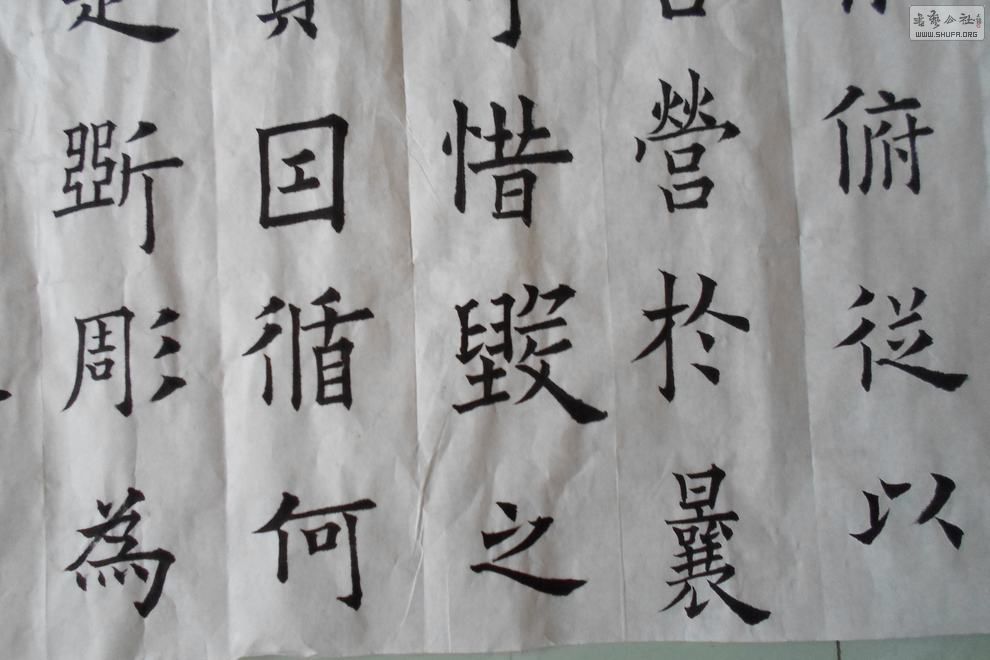 俯從以
營於曩
惜毀之
囙循何
斵彫為
書藝公社
WWW.SHUFA.ORG